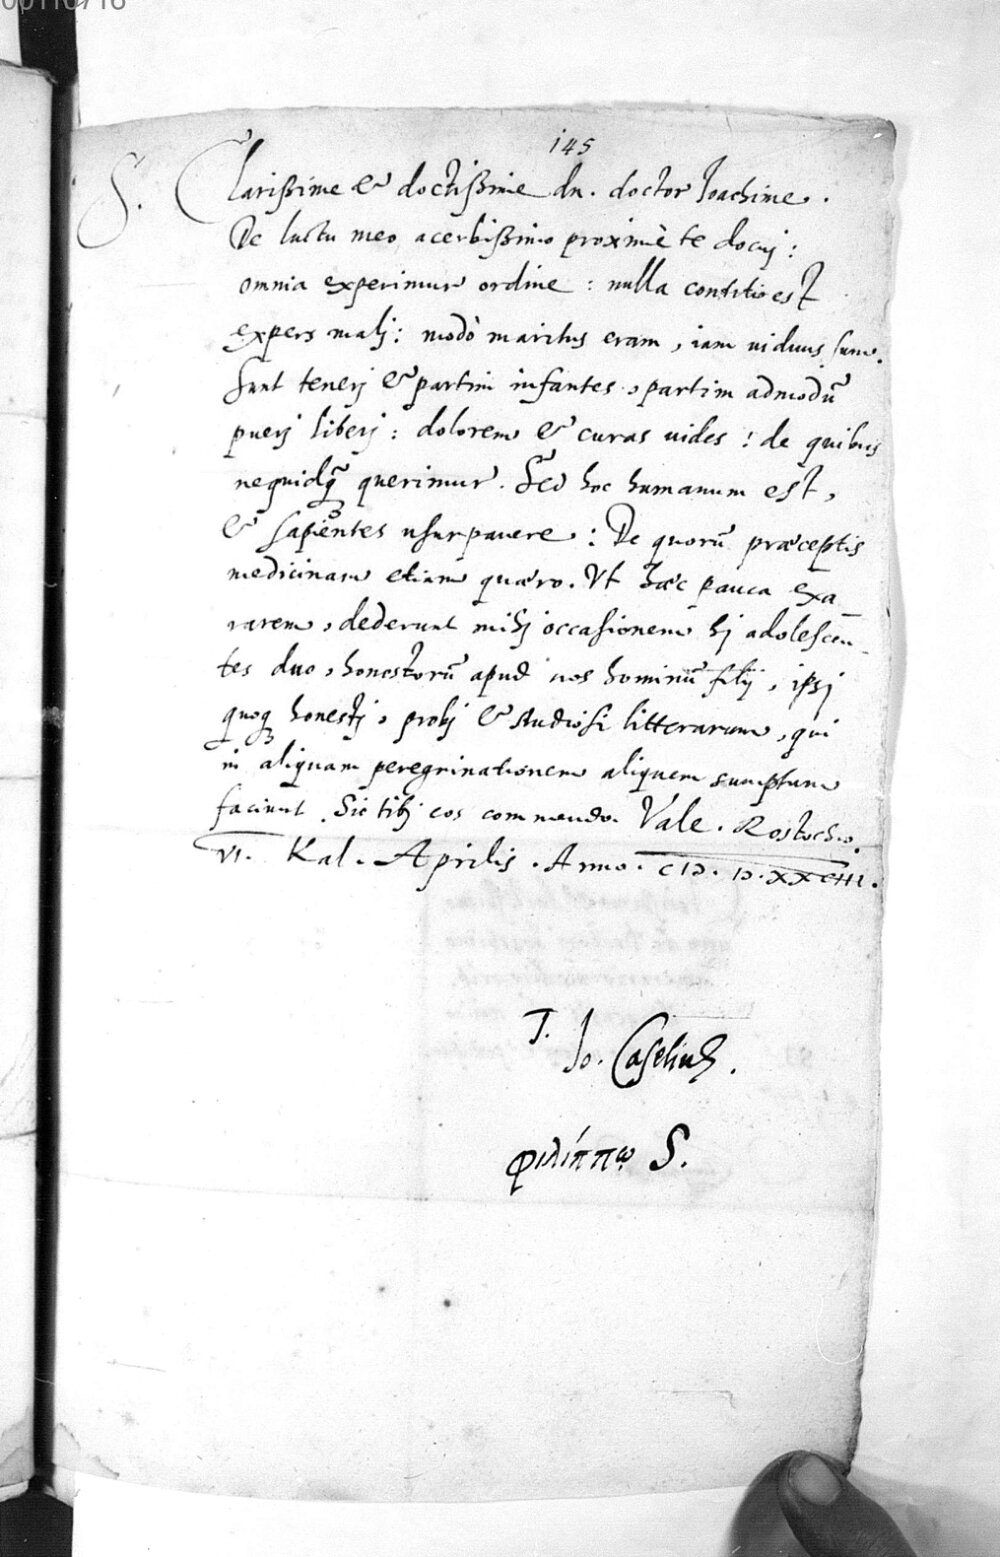 00110716
145
S. Clarißime & doctißime dn. doctor Ioachime.
De luctu meo acerbißimo proximè te docuj:
omnia experimur ordine: nulla conditio est
expers malj: modò maritus eram, iam viduus sum.
Sunt tenerj & partim infantes, partim admodū
puerj liberj: dolorem & curas vides! de quibus
nequidq̃ querimur. Sed hoc humanum est,
& sapientes usurpavere: De quorū præceptis
medicinam etiam quæro. Ut hæc pauca exa
rarem, dederunt mihj occasionem hj adolescen-
tes duo, honestorū apud nos hominū filij, ipsj
quoq honestj, probj & studiosi litterarum, qui
in aliquam peregrinationem aliquem sumptum
faciunt. Sic tibj eos commendo. Vale. Rostochio.
VI. Kal. Aprilis. Anno. CIↃ. IↃ. XXCIII.
T.
Io. Caselius.
φιλίππῳ S.